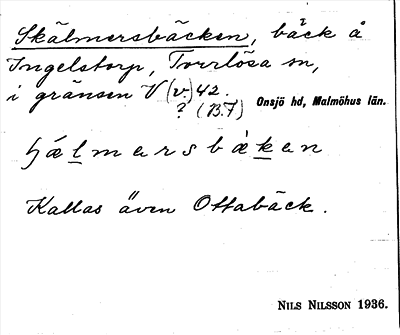 Skälmersbäcken, bäck å
Ingelstorp, Torrlösa sn,
i gränsen V (v.) 42.
? (B.7) Onsjö hd, Malmöhus län.
Kallas även Ottabäck.
NILS NILSSON 1936.